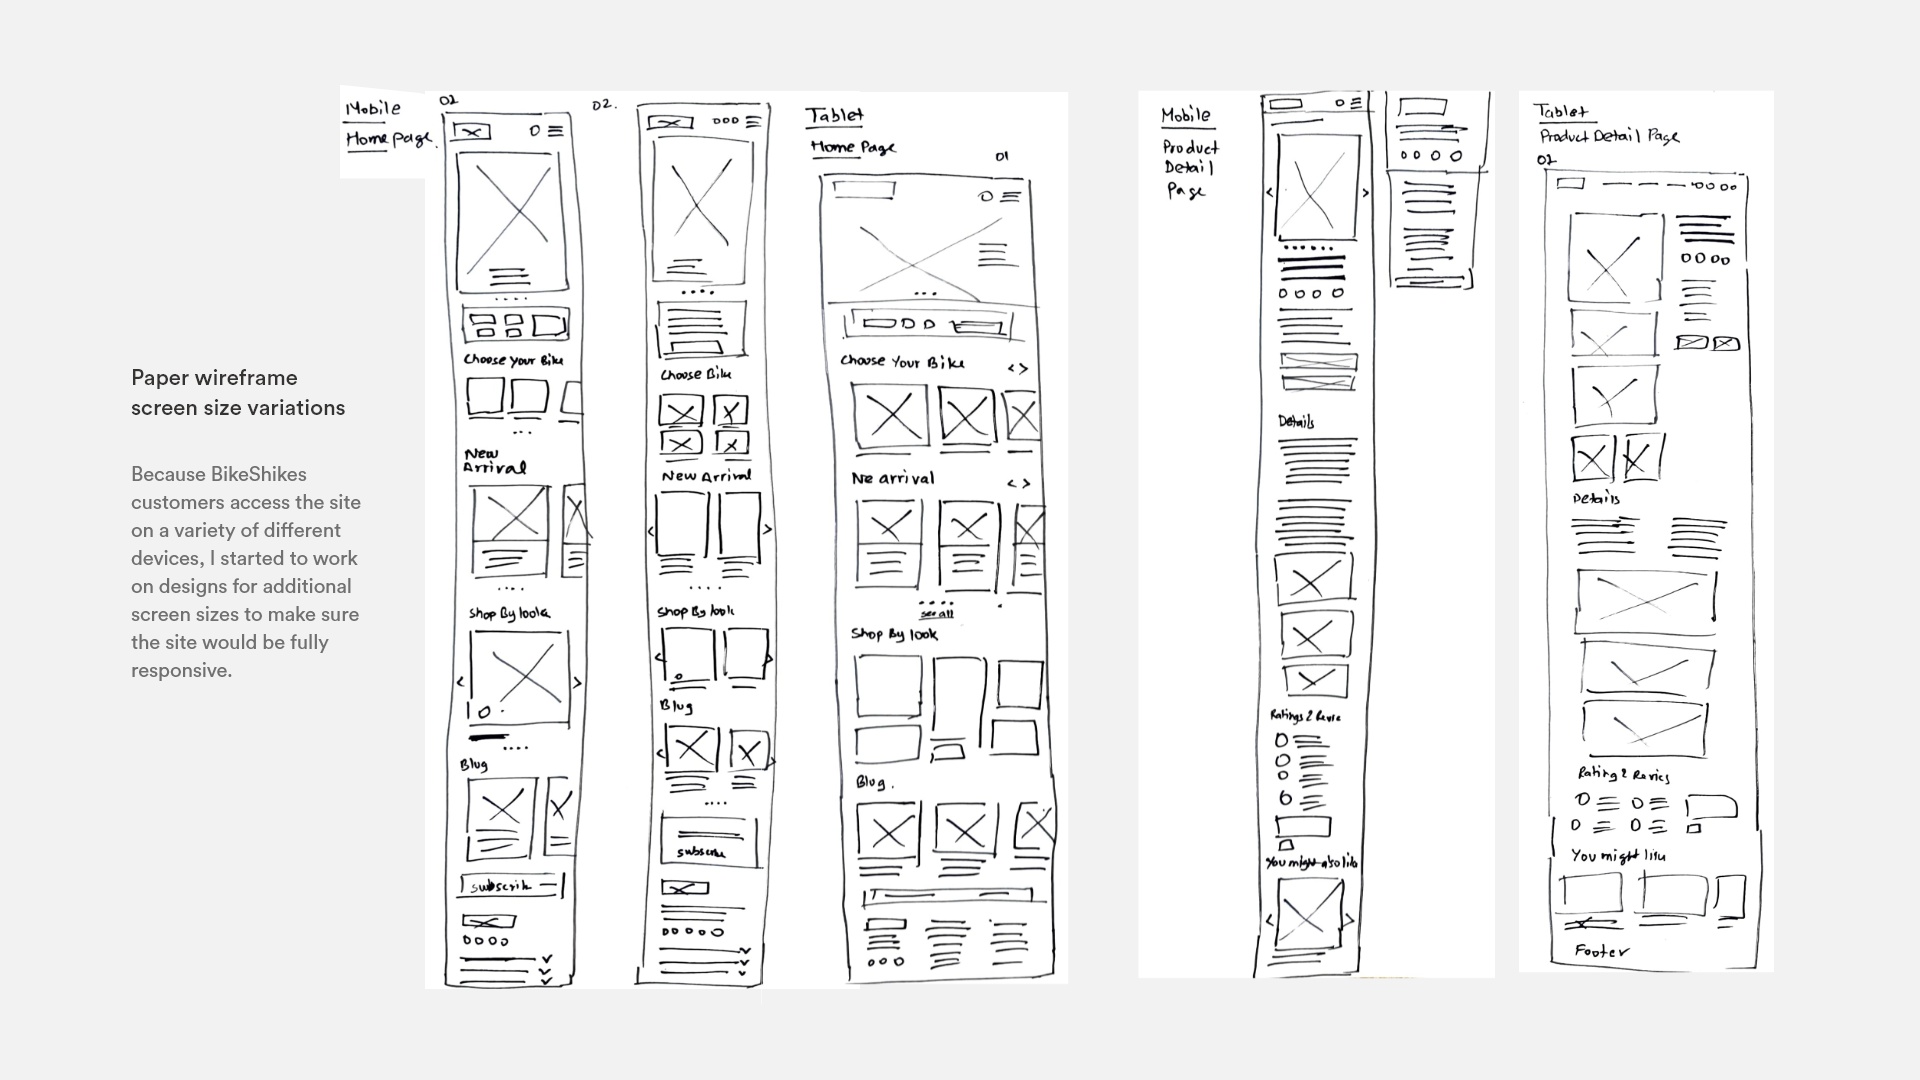 Paper wireframe
screen size variations
Because BikeShikes
customers access the site
on a variety of different
devices, I started to work
on designs for additional
screen sizes to make sure
the site would be fully
responsive.
Mobile
Home Page.
02
Choose Your Bike
New
Arrival
Shop By look
Blug
subscrib
02.
Choose Bike
New Arrival
Shop By look
Blug
subscribe
Tablet
Home Page
01
Choose Your Bike
< >
Ne arrival
< >
see all
Shop By look
Blug.
Mobile
Product
Detail
Page
Details
Ratings & Revie
You might also lik
Tablet
Product Detail Page
02
Details
Rating & Revies
You might lik
Footer